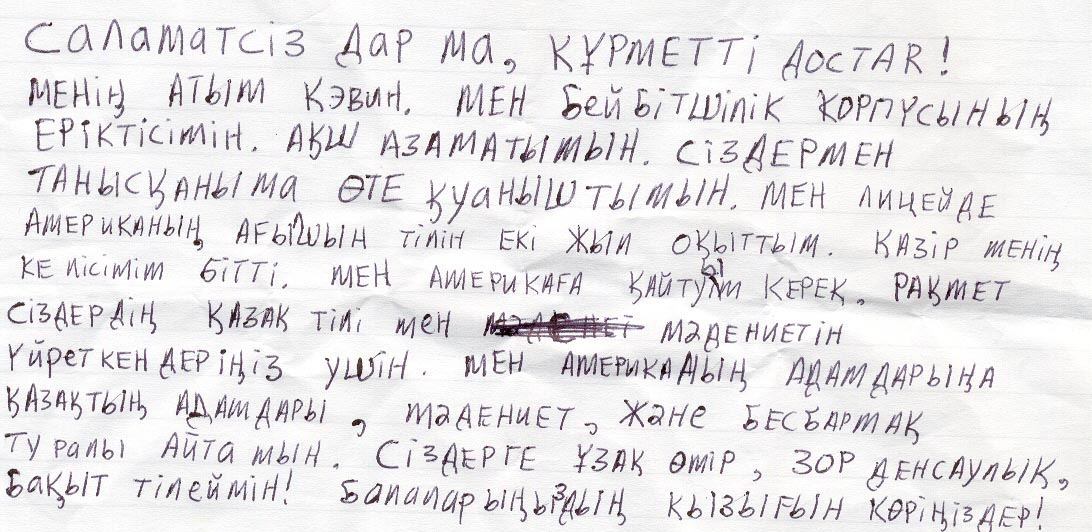 Саламатсіз дар ма, құрметті достар!
Менің атым Кэвин. Мен Бейбітшілік Корпусының
еріктісімін. АҚШ азаматымын. Сіздермен
танысқаныма өте қуаныштымын. Мен лицейде
Американың ағылшын тілін екі жыл оқыттым. Қазір менің
келісімім бітті. Мен Америкаға қайтуым керек. Рақмет
сіздердің қазақ тілі мен мәдениетін
үйреткендеріңіз ушін. Мен Американың адамдарыңа
қазақтың адамдары, мәдениет, және бесбармақ
туралы айтамын. Сіздерге ұзақ өмір, зор денсаулық,
бақыт тілеймін! Балаларыңыздың қызығын көріңіздер!